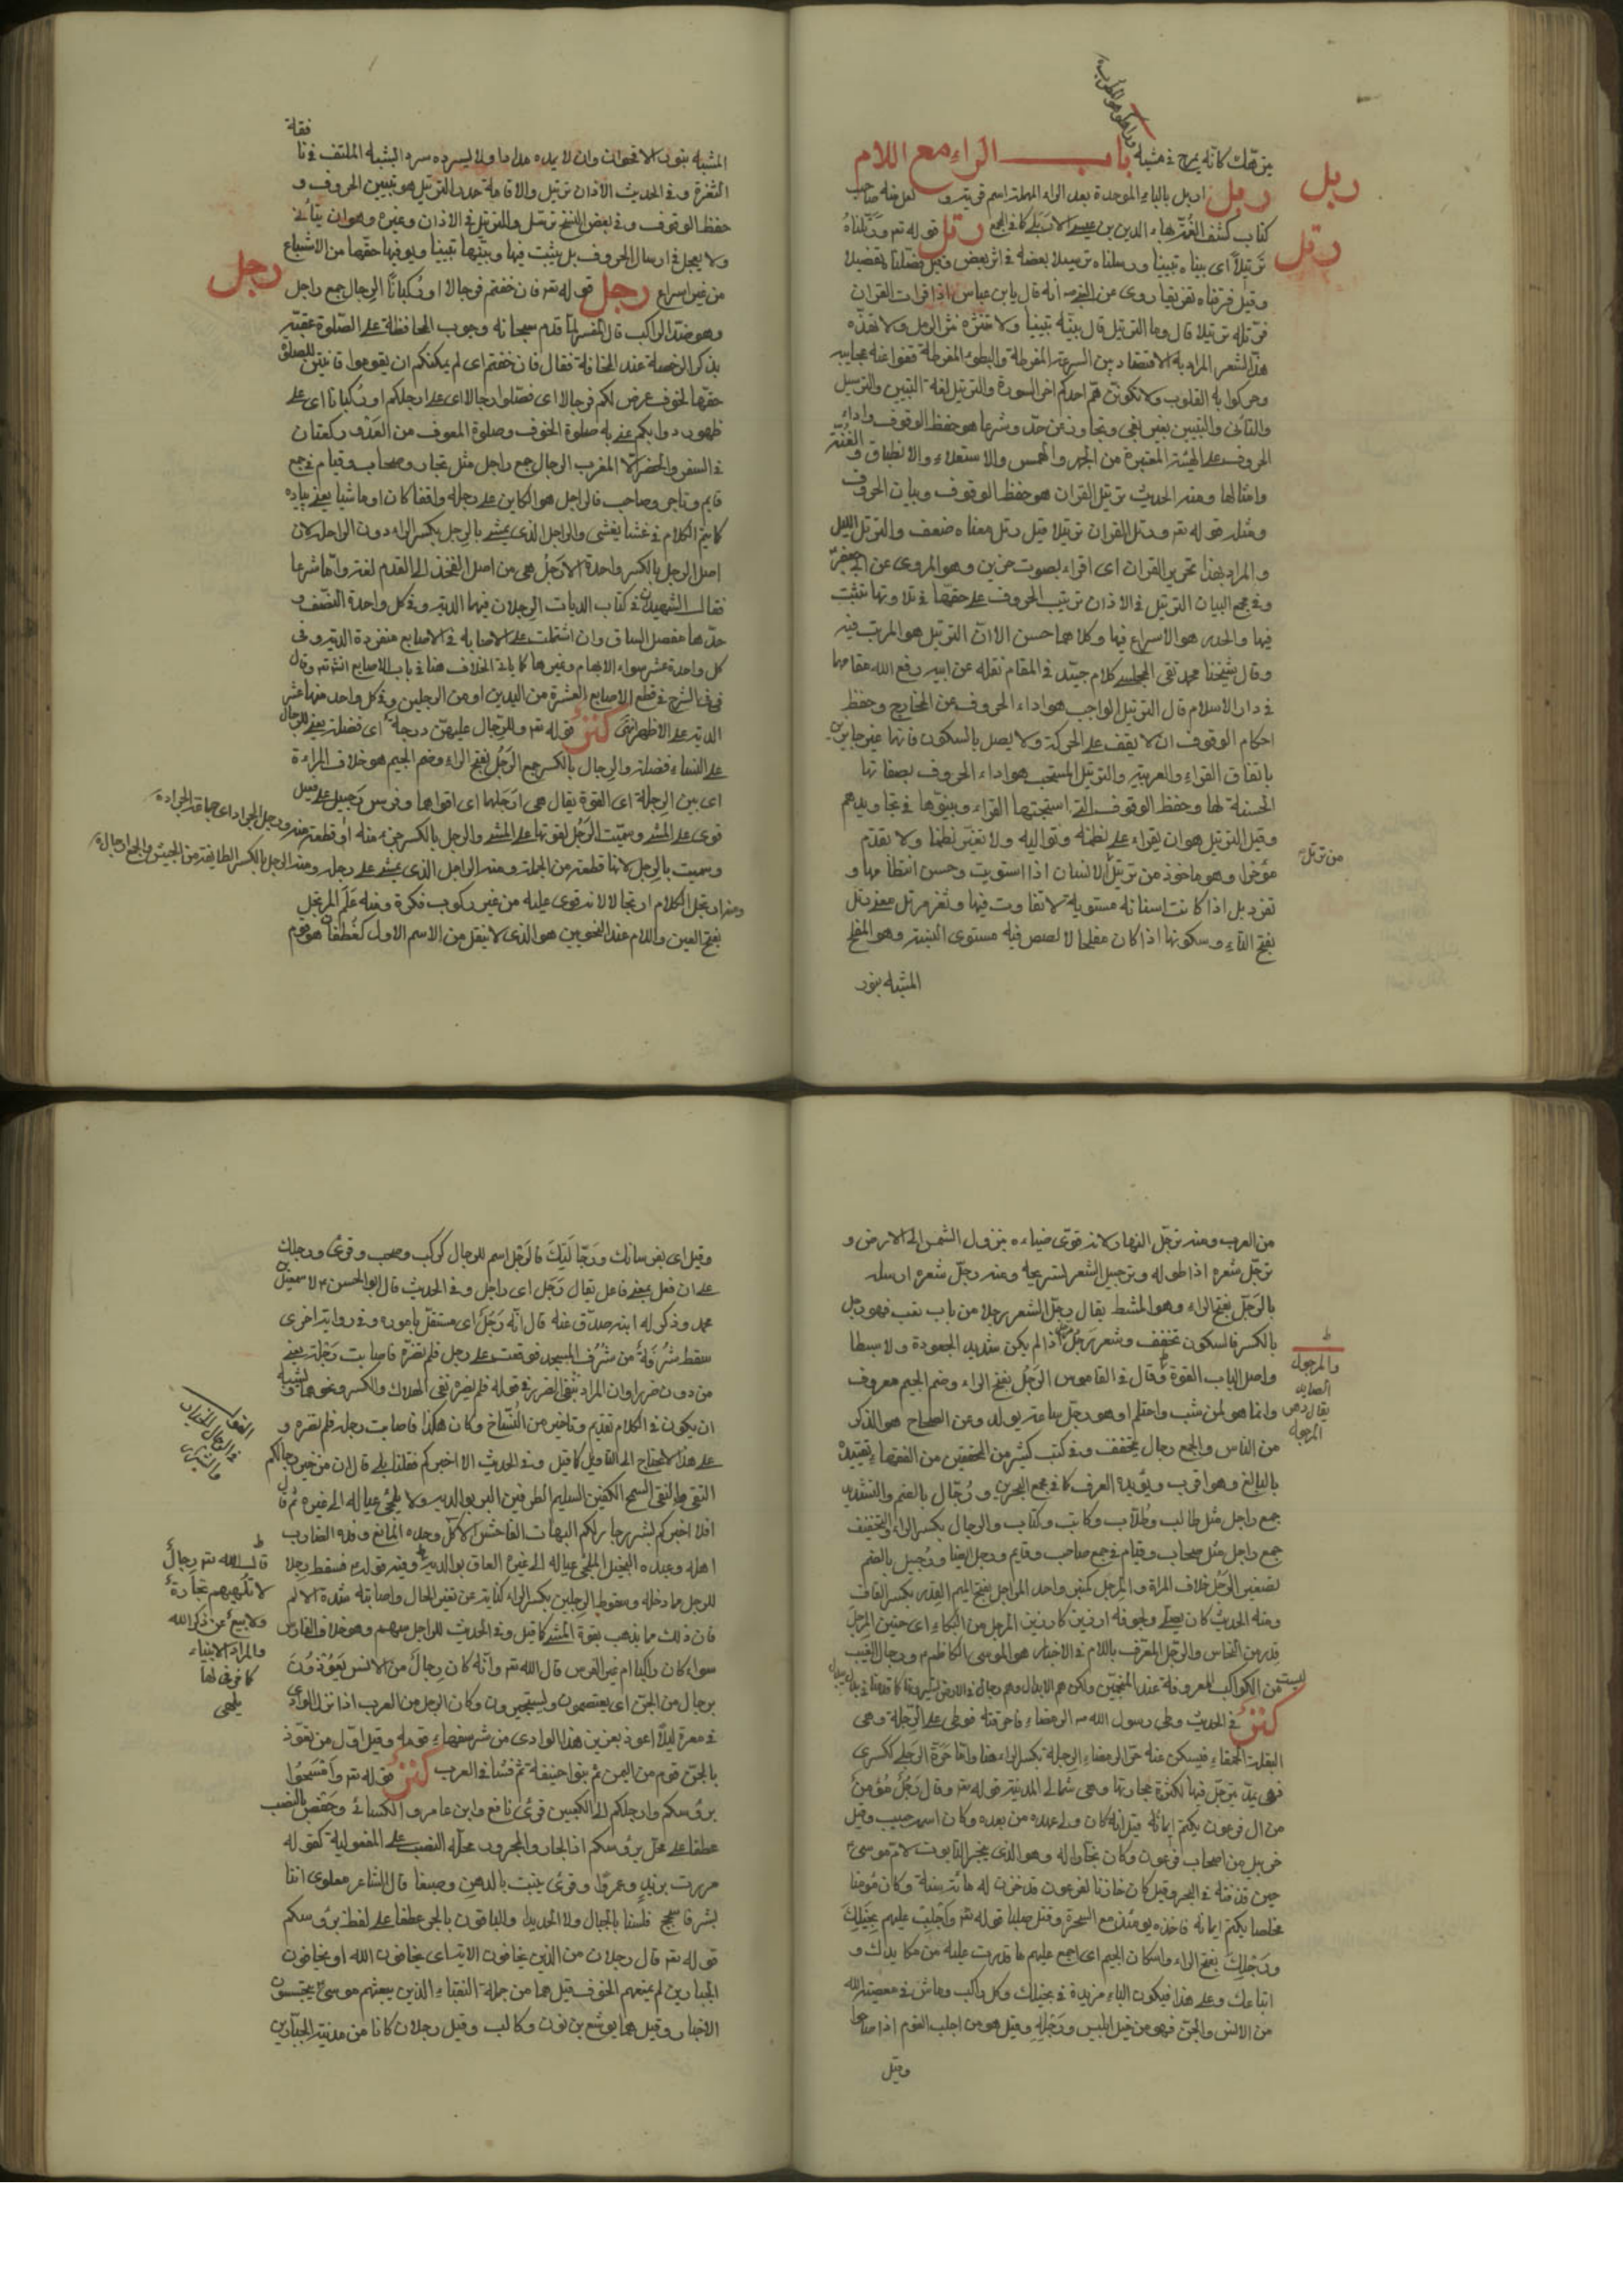 من تهتك كأنه يمرح في مشيه باب الراء مع اللام
ربل
ربل اربل بالباء الموحدة بعد الراء المهملة اسم قرية لعل منه صاحب
كتاب كشف الغمة بهاء الدين بن عيسى الاربلي كما في المجمع رتل قوله تعه ورتلناه
رتل
ترتيلا اى بيناه تبيينا ورسلناه ترسيلا بعضه في اثر بعض وقيل فصلناه تفصيلا
وقيل فرقناه تفريقا روى عن النبي ص انه قال يا بن عباس اذا قرات القران
فرتله ترتيلا قال وما الترتيل قال بينه تبيينا ولا تنثره نثر الرمل ولا تهذه
هذ الشعر المراد به الاقتصاد بين السرعة المفرطة والبطوء المفرطة قفوا عند عجايبه
وحركوا به القلوب ولا يكونن هم احدكم اخر السورة والترتيل لغة التبيين والترسيل
والتأنى والتبيين بغير بغى وتجاوز عن حد وشرعا هو حفظ الوقوف واداء
الحروف على الهيئة المعتبرة من الجهر والهمس والاستعلاء والانطباق والغنة
وامثالها ومنه الحديث ترتيل القران هو حفظ الوقوف وبيان الحروف
ومثله قوله تعه ورتل القران ترتيلا قيل رتل معناه ضعف والترتل اللين
والمراد بهذا تحزين القران اى اقراء بصوت حزين وهو المروى عن ابي جعفر
وفي مجمع البيان الترتيل في الاذان ترتيب الحروف على حقها في تلاوتها بتثبت
فيها والحدر هو الاسراع فيها وكلاهما حسن الا ان الترتيل هو المرتب فيه
وقال شيخنا محمد تقى المجلسي كلام جيد في المقام نقله عن ابيه رفع الله مقامهما
في دار الاسلام قال الترتيل الواجب هو اداء الحروف عن المخارج وحفظ
احكام الوقوف ان لا يقف على الحركة ولا يصل بالسكون فانها غير جايزين
باتفاق القراء والعربية والترتيل المستحب هو اداء الحروف بصفاتها
الحسنة لها وحفظ الوقوف التي استحبها القراء وبينوها في تجاويدهم
وقيل الترتيل هو ان يقراء على نظمه وتواليه ولا تغير نظما ولا تقدم
مؤخرا وهو ماخوذ من ترتل الاسنان اذا استويت وحسن انتظامها و
ثغر رتل اذا كانت اسنانه مستوية لا تفاوت فيها وثغر مرتل معنى رتل
بفتح التاء وسكونها اذا كان مفلجا لا لصص فيه مستوى البنية وهو المفلج
المشبه بنور
المشبه بنور الاقحوان وان لا يمده مدا ولا يسرده سرد البشبه الملتف في نا
الثغرة وفي الحديث الاذان ترتيل والاقامة حدر الترتيل هو تبيين الحروف و
حفظ الوقوف وفي بعض النسخ ترسل والترتيل في الاذان وغيره وهو ان يتأنى
ولا يعجل في ارسال الحروف بل يثبت فيها ويبينها تبيينا ويوفيها حقها من الاشباع
رجل
من غير اسراع رجل قوله تعه فان خفتم فرجالا او ركبانا الرجال جمع راجل
وهو ضد الراكب قال المفسر لما قدم سبحانه وجوب المحافظة على الصلوة عقبه
بذكر الرخصة عند المخافة فقال فان خفتم اى لم يمكنكم ان يقوموا قانتين للصلوة
حقها لخوف عرض لكم فرجالا اى فصلوا رجالا اى على ارجلكم او ركبانا اى على
ظهور دوابكم عنى به صلوة الخوف وصلوة المخوف من العدو ركعتان
في السفر والحضر الا المغرب الرجال جمع راجل مثل تجار وصحاب وقيام في جمع
قايم وتاجر وصاحب فالراجل هو الكاين على رجله واقفا كان او ماشيا يعنى بياده
كما يتم الكلام في غشا يغشى والراجل الذى يمشى بالرجل بكسر الراء دون الراحلة لان
اصل الرجل بالكسر واحدة الارجل هى من اصل الفخذ الى القدم لغة واما شرعا
فقال الشهيدان في كتاب الديات الرجلان فيهما الدية وفي كل واحدة النصف و
حدها مفصل الساق وان اشتملت على الاصابع في الاصابع منفردة الدية وفى
كل واحدة عشر سواء الابهام وغيرها كما ياتى الخلاف هنا في باب الاصابع انشه تعه وقال
في الشرح في قطع الاصابع العشرة من اليدين او من الرجلين وفي كل واحد منها عشر
الدية على الاظهر انتهى كنز قوله تعه وللرجال عليهن درجة اى فضيلة يعنى للرجال
على النساء فضيلة والرجال بالكسر جمع الرجل بفتح الراء وضم الجيم هو خلاف المراءة
اى بين الرجلة اى القوة يقال هى ارجلهما اى اقواهما وفرس رجيل على فعيل
قوى على المشى وسميت الرجل لقوتها على المشى والرجل بالكسر جزء منه او قطعة منه ورجل الجراد اى جماعة الجرادة
وسميت بالرجل لانها قطعة من الجملة ومنه الراجل الذى يمشى على رجله ومنه الرجل بالكسر الطايفة من الجيش والجمع ارجال
ومنه ارتجل الكلام ارتجالا لانه قوى عليه من غير ركوب فكرة ومنه علم المرتجل
بفتح العين واللام عند النحويين هو الذى لا ينقل من الاسم الاول كغطفان هو قوم
من العرب ومنه ترجل النهار لانه قوى ضياءه بنزول الشمس الى الارض و
ترجل شعره اذا طوله وترجيل الشعر تسريحه وعنه رجل شعره ارسله
بالرجل بفتح الراء وهو المشط يقال رجل الشعر رجلا من باب تعب فهو رجل
بالكسر فالسكون تخفف وشعر رجل اذا لم يكن شديد الجعودة ولا سبطا
واصل الباب القوة وقال في القاموس الرجل بفتح الراء وضم الجيم معروف
وانما هو لمن شب واحتلم او هو رجل ساعة يولد وعن الصحاح هو الذكر
من الناس والجمع رجال يخفف وفي كتب كثير من المحققين من الفقهاء تقييده
بالبالغ وهو اقرب ويؤيده العرف كما في مجمع البحرين ورجال بالضم والتشديد
جمع راجل مثل طالب وطلاب وكاتب وكتاب والرجال بكسر الراء والتخفيف
جمع راجل مثل صحاب وقيام في جمع صاحب وقايم ورجل ايضا ورجيل بالضم
تصغير الرجل خلاف المراة والمرجل كمنبر واحد المراجل بفتح الميم القدر بكسر القاف
ومنه الحديث كان يصلى ولجوفه ازيز كازيز المرجل من البكاء اى حنين المرجل
قدر من النحاس والرجل المعرف باللام في الاخبار هو الموسى الكاظم ع ورجال الغيب
كنز في الحديث وطى رسول الله ص الرمضاء فاحرقته فوطى على الرجلة وهى
البقلة الحمقاء فيسكن عنه حر الرمضاء الرجلة بكسر الراء هنا واما حرة الرجلى كسكرى
من ال فرعون يكتم ايمانه قيل انه كان ولى عهده من بعده وكان اسمه حبيب وقيل
خربيل من اصحاب فرعون وكان نجارا له وهو الذى ينجر التابوت لام موسى ع
حين قذفته في البحر وقيل كان خازنا لفرعون قد خزن له مائة سنة وكان مؤمنا
مخلصا يكتم ايمانه فاخذه يومئذ مع السحرة وقتل صلبا قوله تعه واجلب عليهم بخيلك
ورجلك بفتح الراء واسكان الجيم اى اجمع عليهم ما قدرت عليه من مكايدك و
اتباعك وعلى هذا فيكون الباء مزيدة في بخيلك وكل راكب وماش في معصية الله
من الانس والجن فهو من خيل ابليس ورجله وقيل هو من اجلب القوم اذا صاحوا
وقيل
وقيل اى بفرسانك ورجالتك فالرجل اسم للرجال كركب وصحب وقرئ ورجلك
على ان فعل بمعنى فاعل يقال رجل اى راجل وفي الحديث قال ابو الحسن ع لاسمعيل بن
محمد وذكر له ابنه صدق عنه قال انه رجل اى مستقل باموره وفي رواية اخرى
سقط شرفة من شرف المسجد فوقعت على رجل فلم تضره فاصابت رجله يعنى
من دون ضرار وان المراد بنفى الضرر في قوله فلم يضره نفى الهلاك والكسر ونحوهما
ان يكون في الكلام تقديم وتاخير من النساخ وكان هكذا فاصابت رجله فلم تضره و
على هذا لا يحتاج الى التاويل كما قيل وفي الحديث الا اخبركم فقلنا بلى قال ان من خير رجالكم
التقى النقى السمح الكفين السليم الطرفين البر بوالديه ولا يلجئ عياله الى غيره ثم قال
افلا اخبركم بشر رجالكم البهات الفاحش الاكل وحده المانع رفده الضارب
اهله وعبده البخيل الملجئ عياله الى غيره العاق بوالديه وفيه قوله فسقط رجلا
للرجل ما دخله وسقوط الرجلين بكسر الراء كناية عن تغير الحال واصابته شدة الالم
فان ذلك مما يذهب بقوة المشى كما قيل وفي الحديث للراجل سهم وهو خلاف الفارس
سواء كان راكبا ام غير الفرس قال الله تعه وانه كان رجال من الانس يعوذون
برجال من الجن اى يعتصمون ويستجيرون وكان الرجل من العرب اذا نزل الوادى
في سفره ليلا اعوذ بعزيز هذا الوادى من شر سفهاء قومه وقيل اول من تعوذ
بالجن قوم من اليمن ثم بنو حنيفة ثم فشا في العرب كنز قوله تعه وامسحوا
برؤسكم وارجلكم الى الكعبين قرئ نافع وابن عامر والكسائي وحفص بالنصب
عطفا على محل برؤسكم اذ الجار والمجرور محله النصب على المفعولية كقوله
مررت بزيد وعمروا وقرئ ينبت بالدهن وصبغا قال الشاعر معاوى اننا
بشر فاسجح فلسنا بالجبال ولا الحديدا والباقون بالجر عطفا على لفظ برؤسكم
قوله تعه قال رجلان من الذين يخافون الاية اى يخافون الله او يخافون
الجبارين لم يمنعهم الخوف قيل هما من جملة النقباء الذين بعثهم موسى ع يتجسسون
الاخبار وقيل هما يوشع بن نون وكالب وقيل رجلان كانا من مدينة الجبارين
قال الله تعه رجال
لا تلهيهم تجارة
ولا بيع عن ذكر الله
والمراد الانبياء